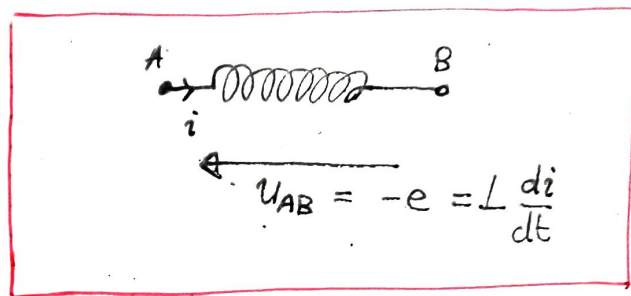 A B
i
u_AB = -e = L di/dt